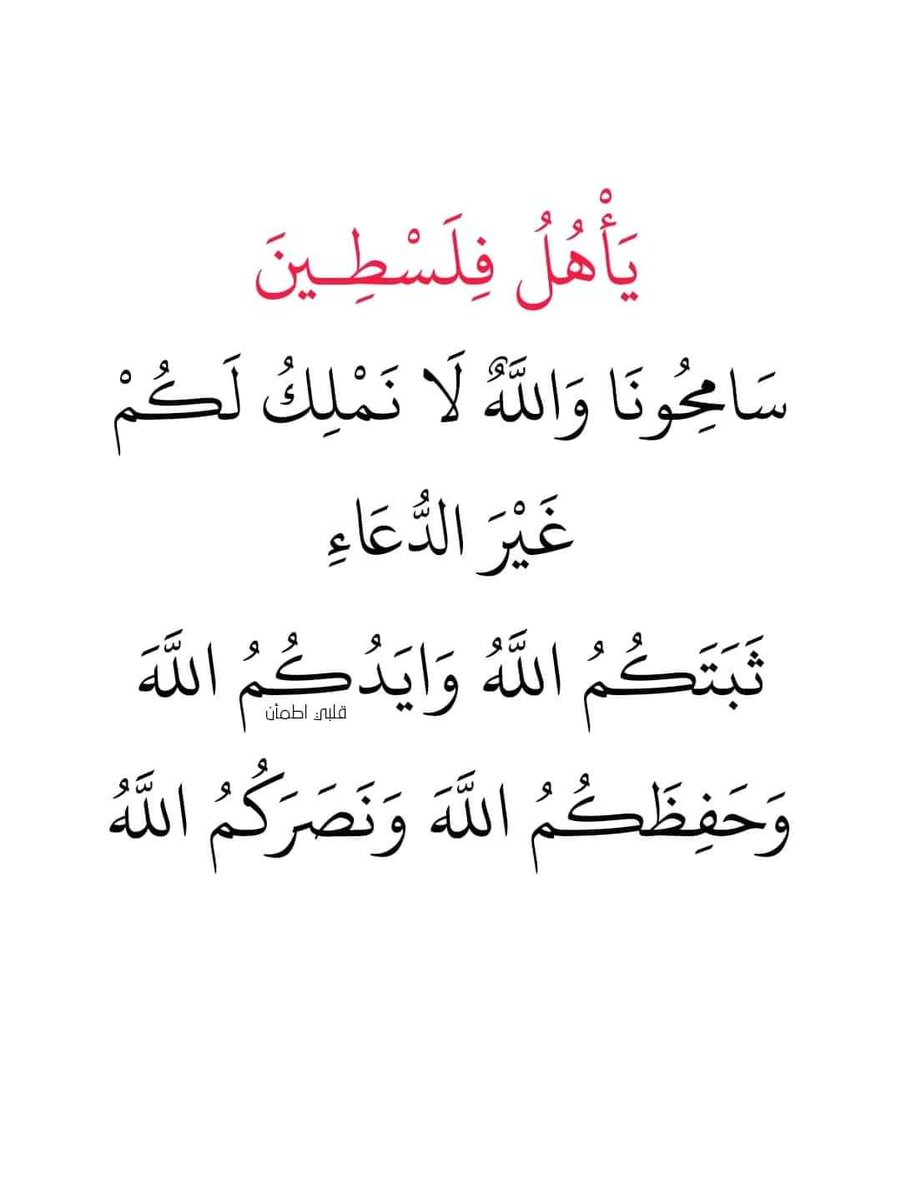 يَأْهُلُ فِلَسْطِـينَ
سَامِحُونَا وَاللَّهٌ لَا نَمْلِكُ لَكُمْ
غَيْرَ الدُّعَاءِ
ثَبَتَكُمُ اللَّهُ وَايَدُكُمُ اللَّهَ
قلبي اطمأن
وَحَفِظَكُمُ اللَّهَ وَنَصَرَكُمُ اللَّهُ